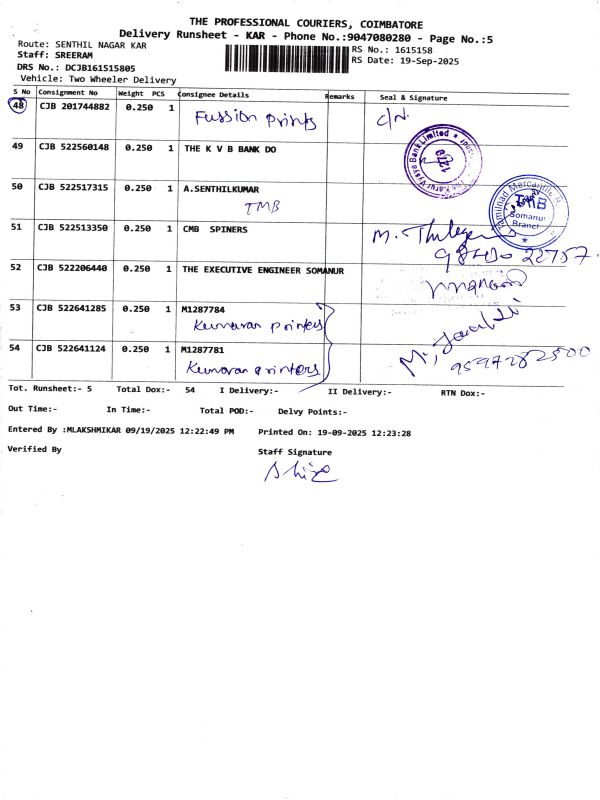 THE PROFESSIONAL COURIERS, COIMBATORE
Delivery Runsheet - KAR - Phone No.:9047080280 - Page No.:5
Route: SENTHIL NAGAR KAR
RS No.: 1615158
Staff: SREERAM
RS Date: 19-Sep-2025
DRS No.: DCJB161515805
Vehicle: Two Wheeler Delivery
S No Consignment No Weight PCS Consignee Details Remarks Seal & Signature
48 CJB 201744882 0.250 1 Fussion prints C/N.
49 CJB 522560148 0.250 1 THE K V B BANK DO
Vysya Bank Limited
50 CJB 522517315 0.250 1 A.SENTHILKUMAR
TMB
Tamilnad Mercantile
TMB
Somanur
Branch
51 CJB 522513350 0.250 1 CMB SPINERS
52 CJB 522206440 0.250 1 THE EXECUTIVE ENGINEER SOMANUR
53 CJB 522641285 0.250 1 M1287784
Kumaran printers
54 CJB 522641124 0.250 1 M1287781
Kumaran printers
Tot. Runsheet:- 5 Total Dox:- 54 I Delivery:- II Delivery:- RTN Dox:-
Out Time:- In Time:- Total POD:- Delvy Points:-
Entered By :MLAKSHMIKAR 09/19/2025 12:22:49 PM Printed On: 19-09-2025 12:23:28
Verified By Staff Signature